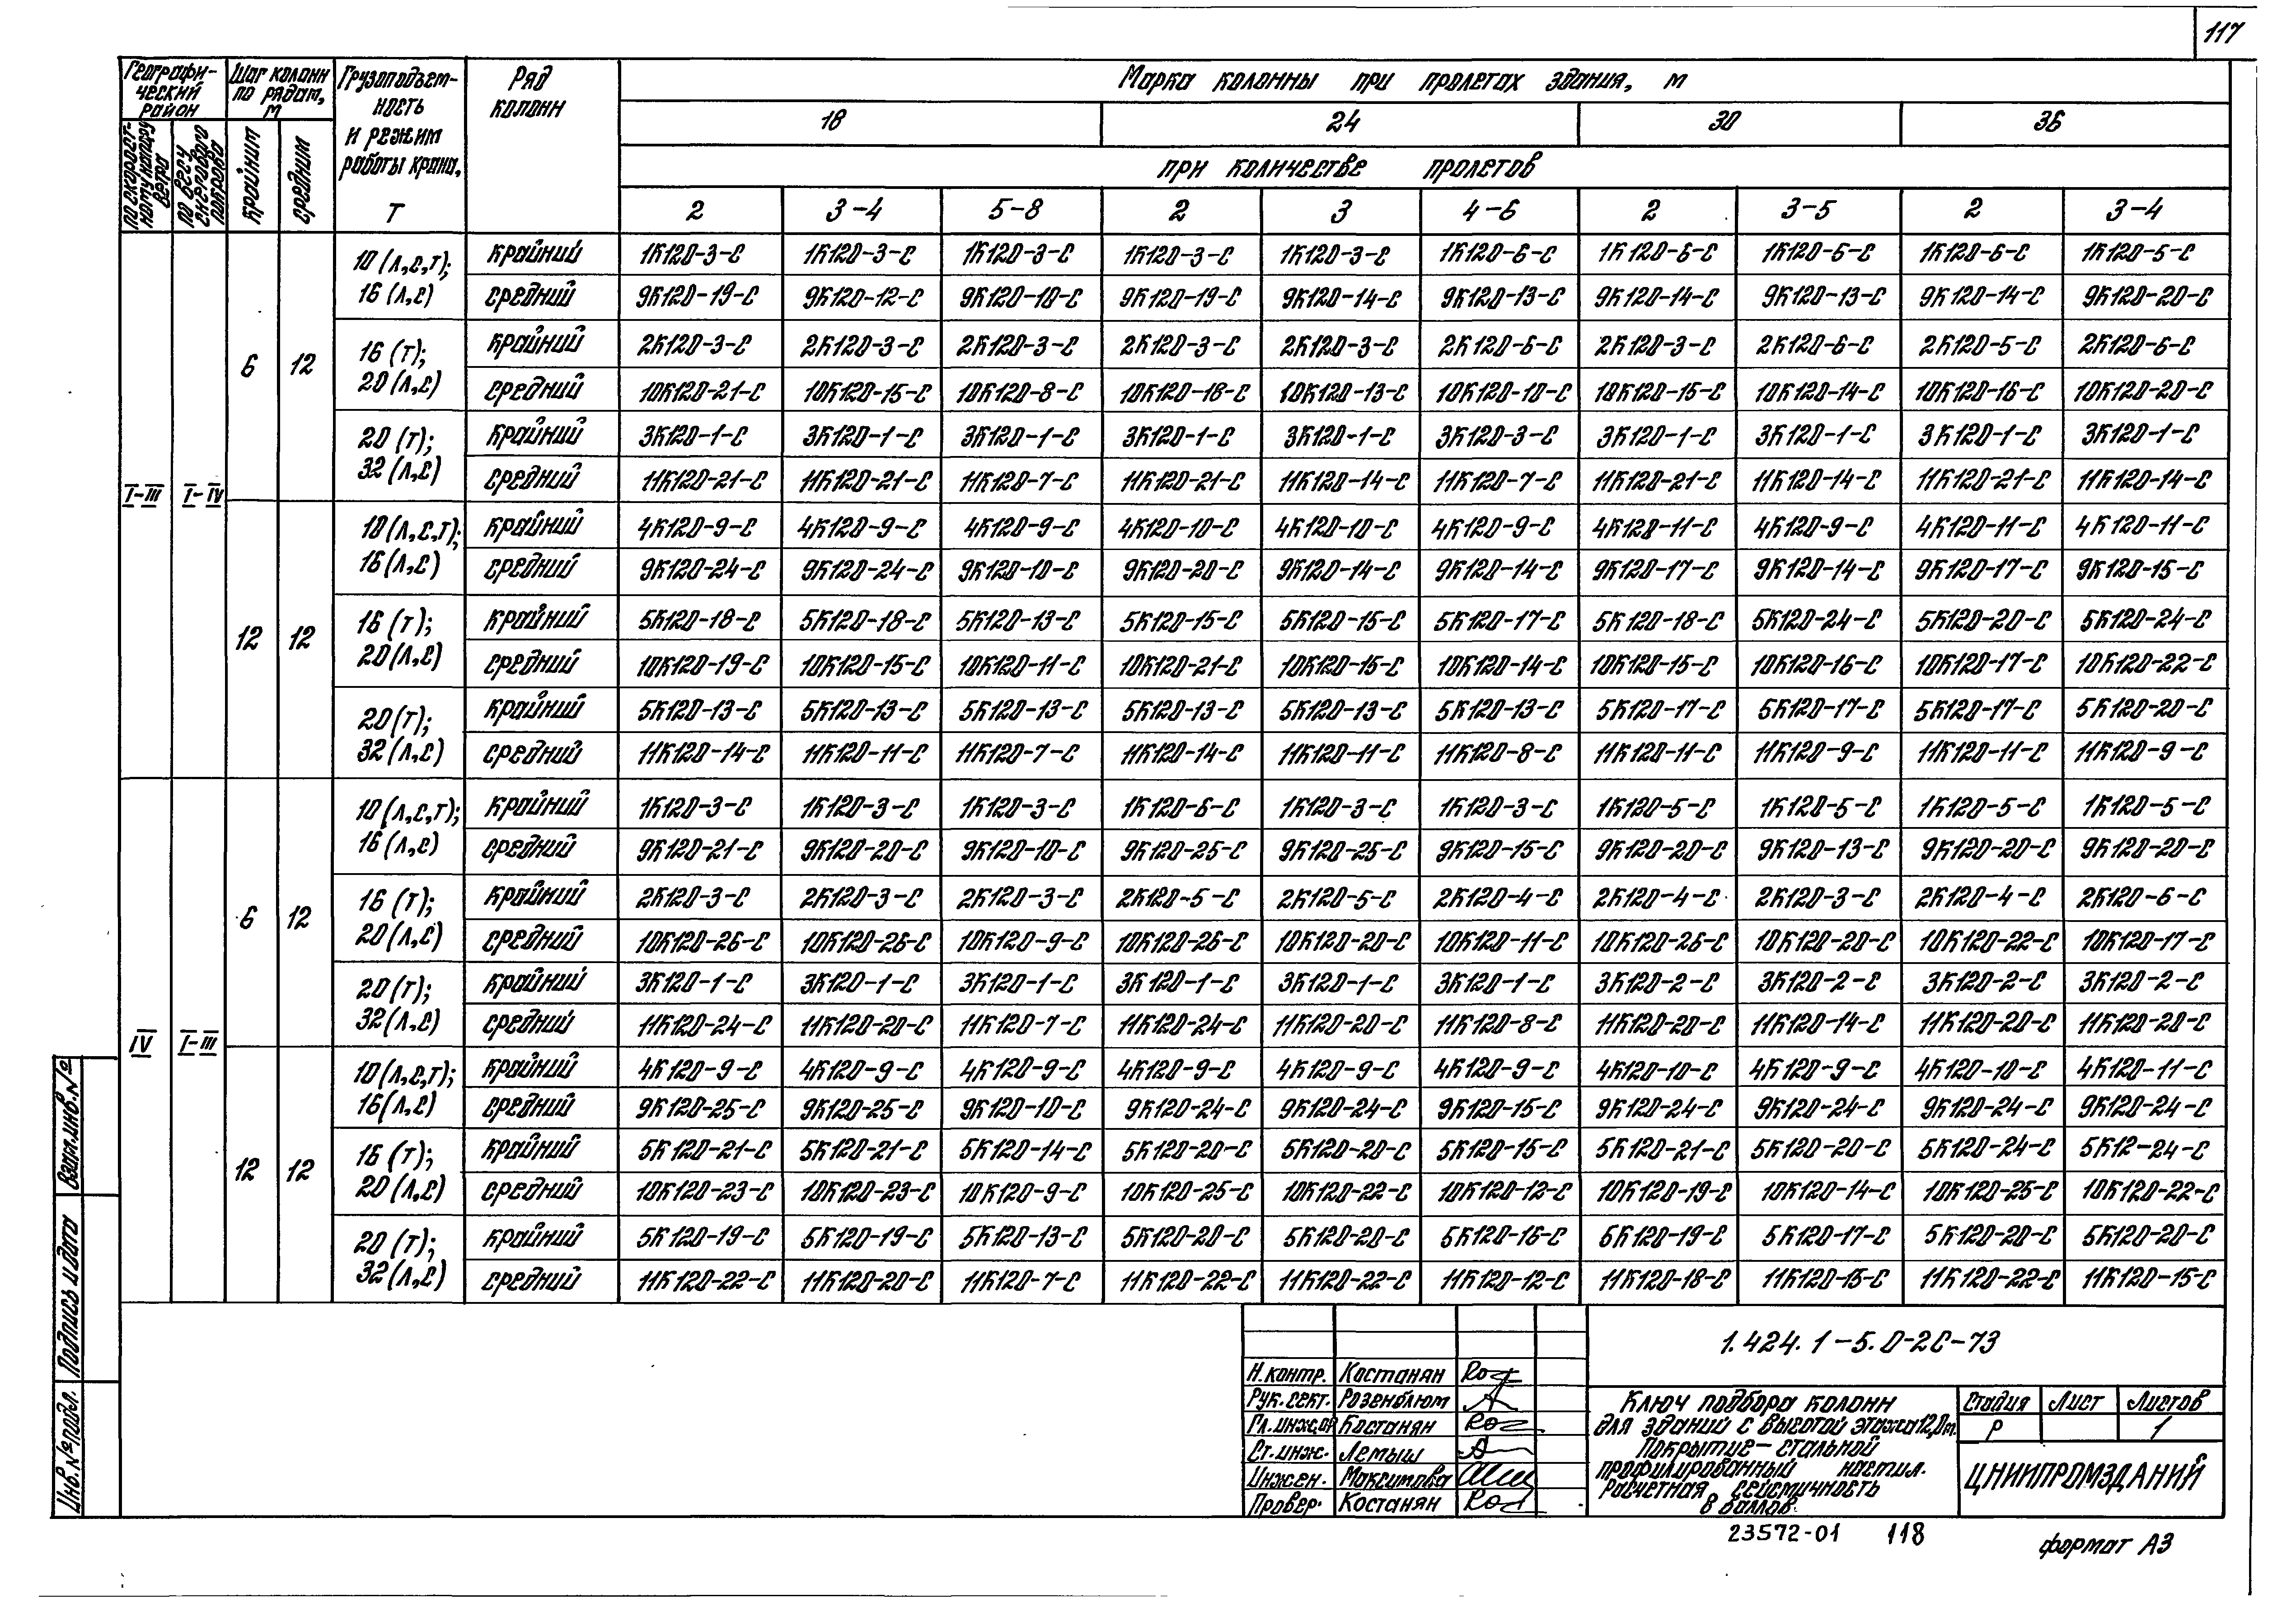 117
Географи-ческий район | Шаг колонн по рядам, м | Грузоподъем-ность и режим работы крана, т | Ряд колонн | Марка колонны при пролетах здания, м
по скорост-ному напору ветра | по весу снегового покрова | крайним | средним | 18 | 24 | 30 | 36
при количестве пролетов
2 | 3-4 | 5-8 | 2 | 3 | 4-6 | 2 | 3-5 | 2 | 3-4
I-III | I-IV | 6 | 12
10 (Л,С,Т); 16 (Л,С)
крайний | 1К120-3-С | 1К120-3-С | 1К120-3-С | 1К120-3-С | 1К120-3-С | 1К120-6-С | 1К120-6-С | 1К120-6-С | 1К120-6-С | 1К120-5-С
средний | 9К120-19-С | 9К120-12-С | 9К120-10-С | 9К120-19-С | 9К120-14-С | 9К120-13-С | 9К120-14-С | 9К120-13-С | 9К120-14-С | 9К120-20-С
16 (Т); 20 (Л,С)
крайний | 2К120-3-С | 2К120-3-С | 2К120-3-С | 2К120-3-С | 2К120-3-С | 2К120-6-С | 2К120-3-С | 2К120-6-С | 2К120-5-С | 2К120-6-С
средний | 10К120-21-С | 10К120-15-С | 10К120-8-С | 10К120-18-С | 10К120-13-С | 10К120-10-С | 10К120-15-С | 10К120-14-С | 10К120-16-С | 10К120-20-С
20 (Т); 32 (Л,С)
крайний | 3К120-1-С | 3К120-1-С | 3К120-1-С | 3К120-1-С | 3К120-1-С | 3К120-3-С | 3К120-1-С | 3К120-1-С | 3К120-1-С | 3К120-1-С
средний | 11К120-21-С | 11К120-21-С | 11К120-7-С | 11К120-21-С | 11К120-14-С | 11К120-7-С | 11К120-21-С | 11К120-14-С | 11К120-21-С | 11К120-14-С
12 | 12
10 (Л,С,Т); 16 (Л,С)
крайний | 4К120-9-С | 4К120-9-С | 4К120-9-С | 4К120-10-С | 4К120-10-С | 4К120-9-С | 4К120-11-С | 4К120-9-С | 4К120-11-С | 4К120-11-С
средний | 9К120-24-С | 9К120-24-С | 9К120-10-С | 9К120-20-С | 9К120-14-С | 9К120-14-С | 9К120-17-С | 9К120-14-С | 9К120-17-С | 9К120-15-С
16 (Т); 20 (Л,С)
крайний | 5К120-18-С | 5К120-18-С | 5К120-13-С | 5К120-15-С | 5К120-15-С | 5К120-17-С | 5К120-18-С | 5К120-24-С | 5К120-20-С | 5К120-24-С
средний | 10К120-19-С | 10К120-15-С | 10К120-11-С | 10К120-21-С | 10К120-15-С | 10К120-14-С | 10К120-15-С | 10К120-16-С | 10К120-17-С | 10К120-22-С
20 (Т); 32 (Л,С)
крайний | 5К120-13-С | 5К120-13-С | 5К120-13-С | 5К120-13-С | 5К120-13-С | 5К120-13-С | 5К120-17-С | 5К120-17-С | 5К120-17-С | 5К120-20-С
средний | 11К120-14-С | 11К120-11-С | 11К120-7-С | 11К120-14-С | 11К120-11-С | 11К120-8-С | 11К120-11-С | 11К120-9-С | 11К120-11-С | 11К120-9-С
IV | I-III | 6 | 12
10 (Л,С,Т); 16 (Л,С)
крайний | 1К120-3-С | 1К120-3-С | 1К120-3-С | 1К120-6-С | 1К120-3-С | 1К120-3-С | 1К120-5-С | 1К120-5-С | 1К120-5-С | 1К120-5-С
средний | 9К120-21-С | 9К120-20-С | 9К120-10-С | 9К120-25-С | 9К120-25-С | 9К120-15-С | 9К120-20-С | 9К120-13-С | 9К120-20-С | 9К120-20-С
16 (Т); 20 (Л,С)
крайний | 2К120-3-С | 2К120-3-С | 2К120-3-С | 2К120-5-С | 2К120-5-С | 2К120-4-С | 2К120-4-С | 2К120-3-С | 2К120-4-С | 2К120-6-С
средний | 10К120-26-С | 10К120-26-С | 10К120-9-С | 10К120-26-С | 10К120-20-С | 10К120-11-С | 10К120-26-С | 10К120-20-С | 10К120-22-С | 10К120-17-С
20 (Т); 32 (Л,С)
крайний | 3К120-1-С | 3К120-1-С | 3К120-1-С | 3К120-1-С | 3К120-1-С | 3К120-1-С | 3К120-2-С | 3К120-2-С | 3К120-2-С | 3К120-2-С
средний | 11К120-24-С | 11К120-20-С | 11К120-7-С | 11К120-24-С | 11К120-20-С | 11К120-8-С | 11К120-20-С | 11К120-14-С | 11К120-20-С | 11К120-20-С
12 | 12
10 (Л,С,Т); 16 (Л,С)
крайний | 4К120-9-С | 4К120-9-С | 4К120-9-С | 4К120-9-С | 4К120-9-С | 4К120-9-С | 4К120-10-С | 4К120-9-С | 4К120-10-С | 4К120-11-С
средний | 9К120-25-С | 9К120-25-С | 9К120-10-С | 9К120-24-С | 9К120-24-С | 9К120-15-С | 9К120-24-С | 9К120-24-С | 9К120-24-С | 9К120-24-С
16 (Т); 20 (Л,С)
крайний | 5К120-21-С | 5К120-21-С | 5К120-14-С | 5К120-20-С | 5К120-20-С | 5К120-15-С | 5К120-21-С | 5К120-20-С | 5К120-24-С | 5К12-24-С
средний | 10К120-23-С | 10К120-23-С | 10К120-9-С | 10К120-25-С | 10К120-22-С | 10К120-12-С | 10К120-19-С | 10К120-14-С | 10К120-25-С | 10К120-22-С
20 (Т); 32 (Л,С)
крайний | 5К120-19-С | 5К120-19-С | 5К120-13-С | 5К120-20-С | 5К120-20-С | 5К120-16-С | 6К120-19-С | 5К120-17-С | 5К120-20-С | 5К120-20-С
средний | 11К120-22-С | 11К120-20-С | 11К120-7-С | 11К120-22-С | 11К120-22-С | 11К120-12-С | 11К120-18-С | 11К120-15-С | 11К120-22-С | 11К120-15-С
Взам.инв.№
Подпись и дата
Инв.№подл.
1.424.1-5.0-2С-73
Н.контр. Костанян
Рук.сект. Розенблюм
Гл.инж.сп Костанян
Ст.инж. Лемыш
Инжен. Максимова
Провер. Костанян
Ключ подбора колонн
для зданий с высотой этажа 12,0м.
Покрытие - стальной
профилированный настил.
Расчетная сейсмичность
8 баллов.
Стадия | Лист | Листов
Р | 1
ЦНИИПРОМЗДАНИЙ
23572-01 118
формат А3